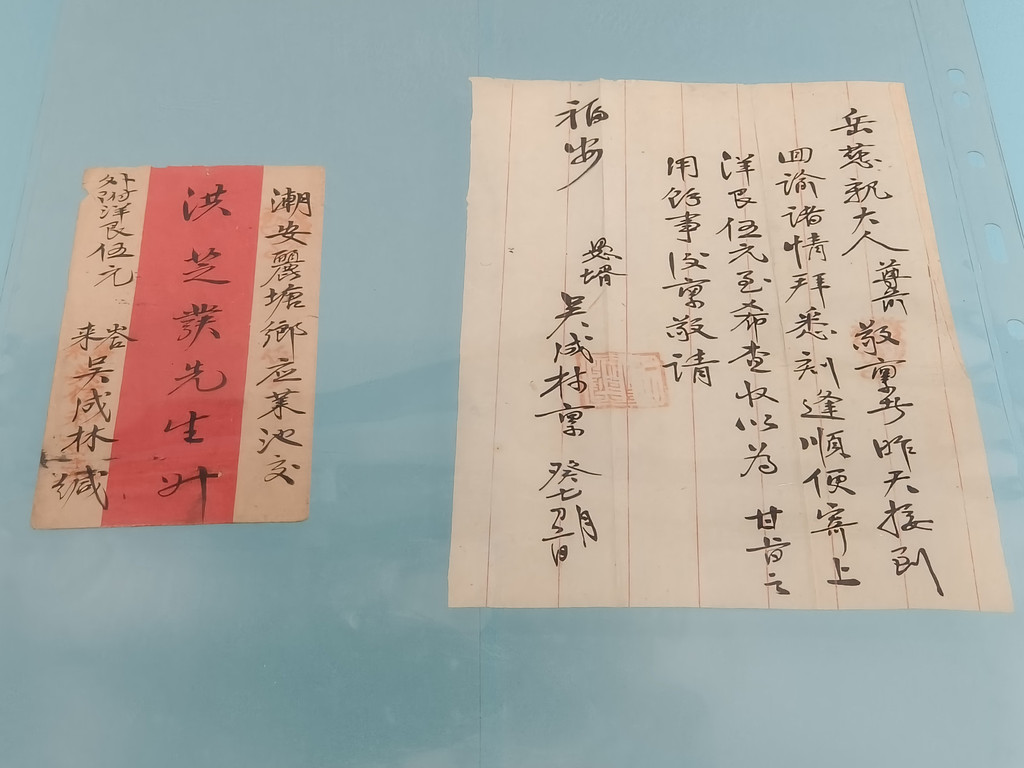 潮安麗塘鄉应菜池交
洪芝謨先生升
外附洋艮伍元
来峇吴成林缄
岳慈親大人尊前敬禀者昨天接到
回諭诸情拜悉刻逢順便寄上
洋艮伍元至希查收以為甘旨之
用餘事後禀敬请
福安
愚壻吴成林禀癸七月